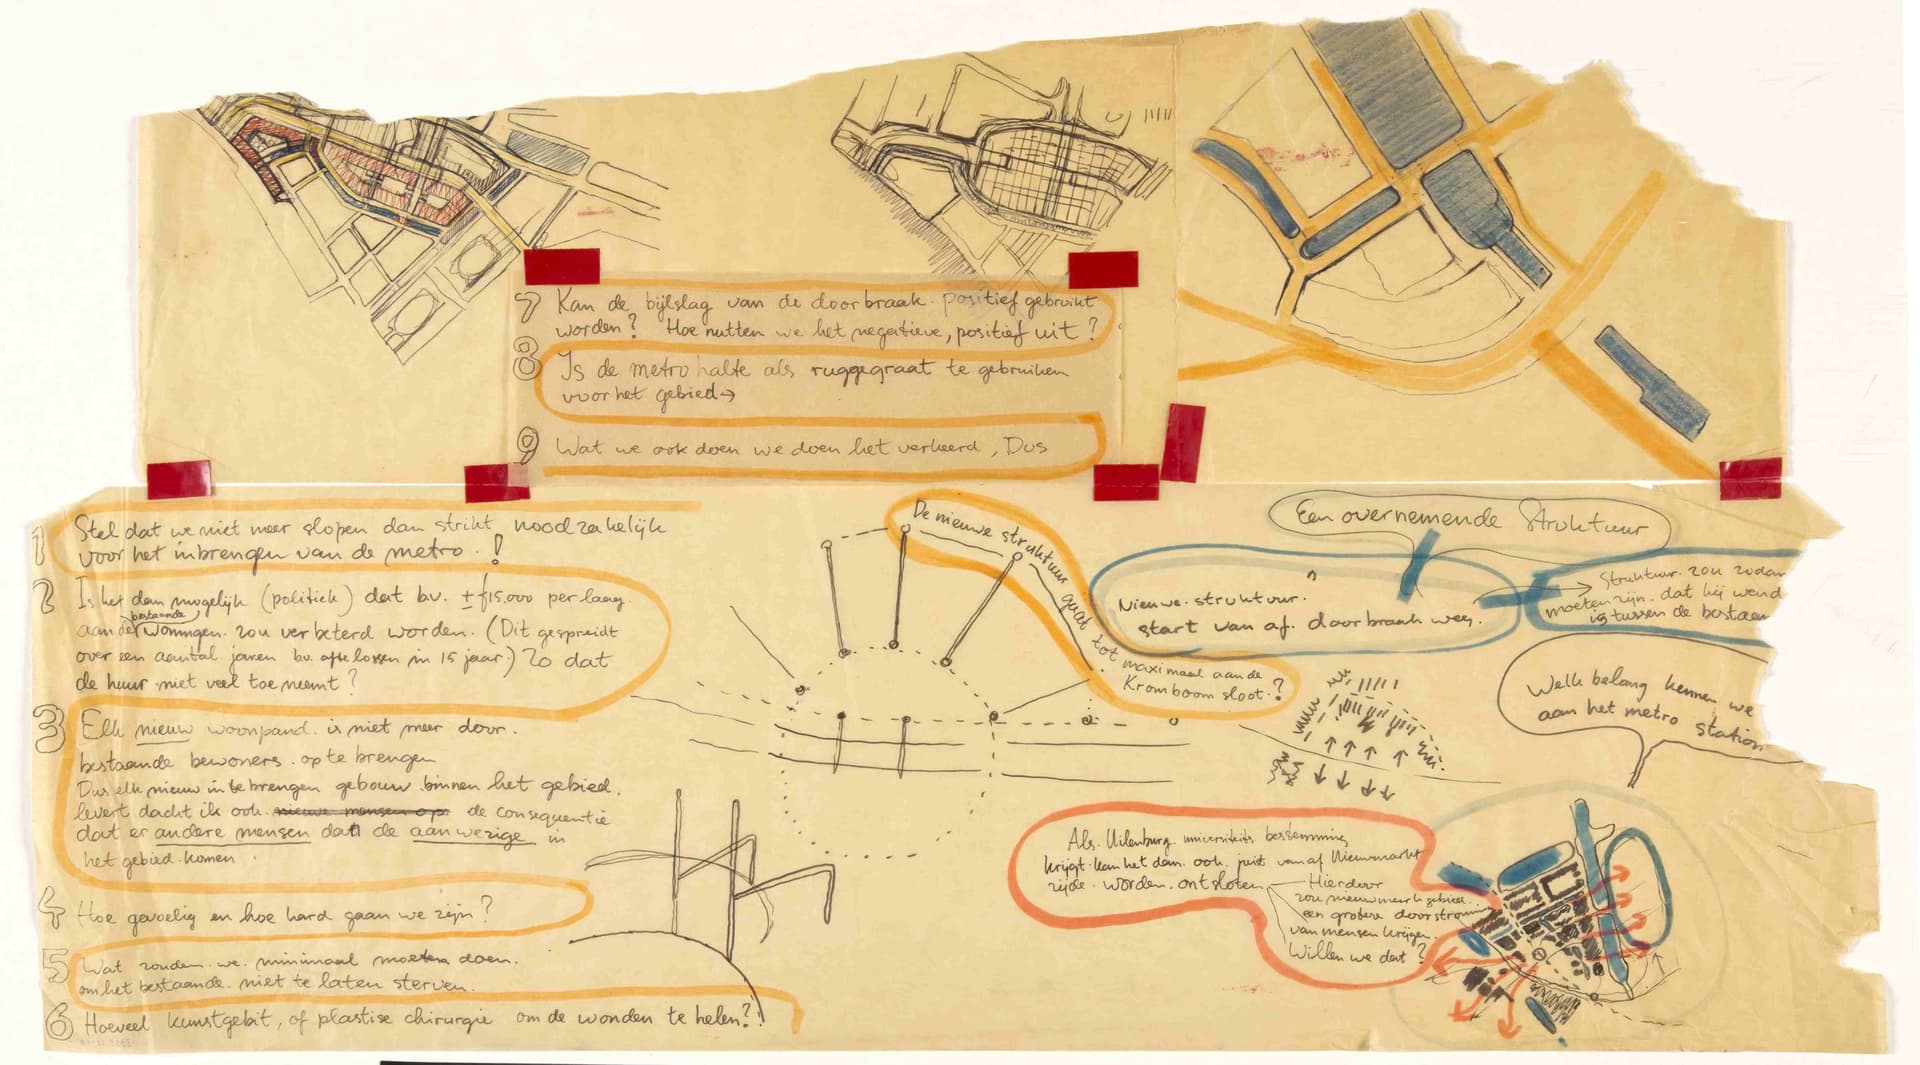 7 Kan de bijlslag van de doorbraak. positief gebruikt
worden? Hoe nutten we het negatieve, positief uit?
8 Is de metrohalte als ruggegraat te gebruiken
voor het gebied →
9 Wat we ook doen we doen het verkeerd, Dus
1 Stel dat we niet meer slopen dan strikt noodzakelijk
voor het inbrengen van de metro.!
2 Is het dan mogelijk (politiek) dat bv. ± f15.000 per laag.
aan de bestaande woningen. zou verbeterd worden. (Dit gespreidt
over een aantal jaren bv. af te lossen in 15 jaar.) Zo dat
de huur niet veel toeneemt?
3 Elk nieuw woonpand. is niet meer door.
bestaande bewoners. op te brengen
Dus elk nieuw in te brengen gebouw binnen het gebied.
levert dacht ik ook. nieuwe mensen op de consequentie
dat er andere mensen dan de aanwezige in
het gebied komen.
4 Hoe gevoelig en hoe hard gaan we zijn?
5 Wat zouden. we. minimaal moeten doen.
om het bestaande. niet te laten sterven.
6 Hoeveel kunstgebit, of plastise chirurgie om de wonden te helen?!
De nieuwe struktuur gaat tot maximaal aan de
Kromboom sloot.?
Een overnemende Struktuur
Nieuwe. struktuur.
start van af. doorbraak weg.
Struktuur. zou zodan
moeten zijn. dat hij wend
is tussen de bestaan
Welk belang kennen we
aan het metro station
Als. Uilenburg. universiteits bestemming
krijgt. kan het dan. ook. juist van af Nieuwmarkt
zijde. worden. ontsloten
Hierdoor
zou nieuwmarkt gebied.
een grotere doorstroming
van mensen krijgen.
Willen we dat?